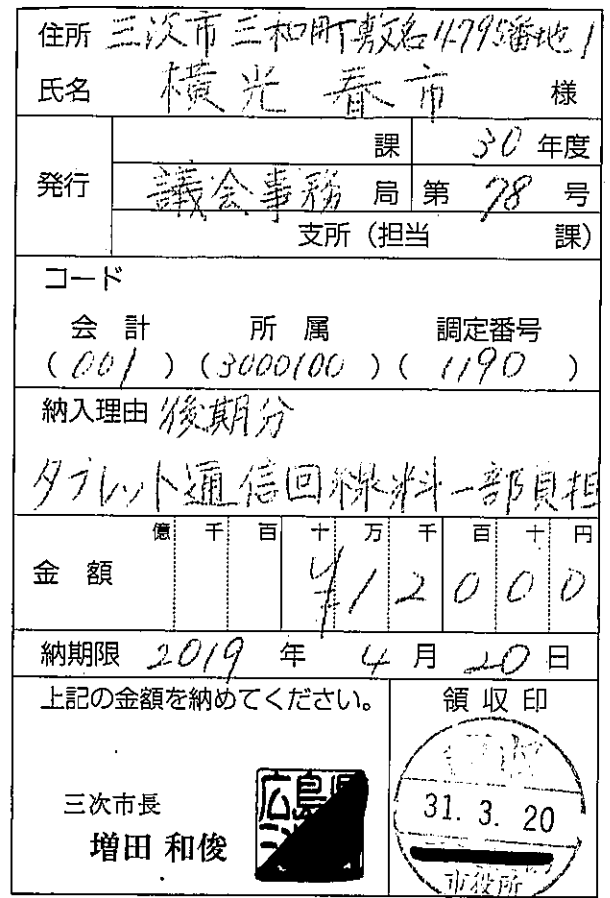 住所 三次市三和町敷名4795番地1
氏名 横光春市 様
発行
課 30年度
議会事務局 第78号
支所(担当 課)
コード
会計 所属 調定番号
(001)(3000100)(1190)
納入理由 後期分
タブレット通信回線料一部負担
億 千 百 十 万 千 百 十 円
金額 ¥12000
納期限 2019年4月20日
上記の金額を納めてください。
領収印
三次市長
増田 和俊
広島県
31.3.20
市役所